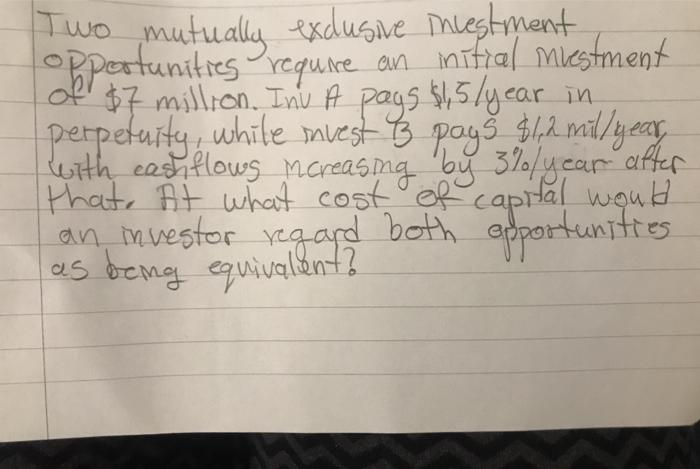 Two mutually exclusive investment
opportunities require an initial investment
of $7 million. Inv A pays $1,5/year in
perpetuity, while invest B pays $1,2 mil/year,
with cashflows increasing by 3%/year after
that. At what cost of capital would
an investor regard both opportunities
as being equivalent?